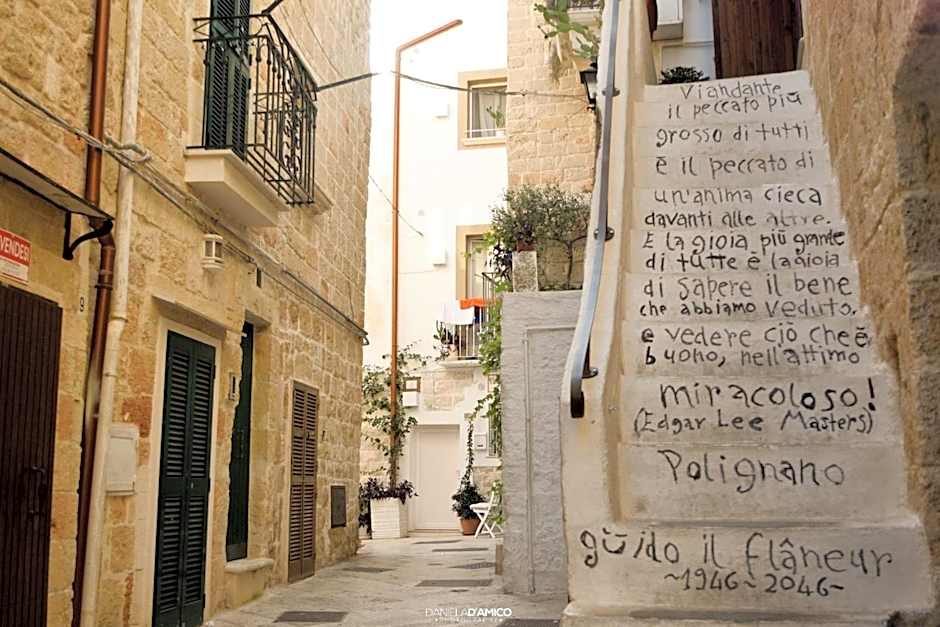 VENDESI
9
Viandante
il peccato più
grosso di tutti
è il peccato di
un'anima cieca
davanti alle altre.
E la gioia più grande
di tutte è la gioia
di sapere il bene
che abbiamo veduto,
e vedere ciò che è
buono, nell'attimo
miracoloso!
(Edgar Lee Masters)
Polignano
guido il flâneur
~1946~2046~
DANIELA D'AMICO
PHOTOGRAPHY